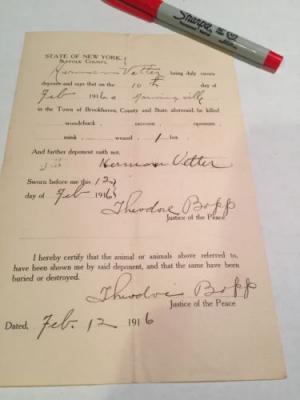 Sharpie
STATE OF NEW YORK,
SUFFOLK COUNTY.
Herman Vetter being duly sworn
deposes and says that on the 10th day of
Feb 1916 at Manorville
in the Town of Brookhaven, County and State aforesaid, he killed
woodchuck , raccoon , opossum ,
mink , weasel , 1 fox
And further deponent saith not.
Herman Vetter
Sworn before me this 12
day of Feb 1916
Theodore Bopp
Justice of the Peace
I hereby certify that the animal or animals above referred to,
have been shown me by said deponent, and that the same have been
buried or destroyed.
Theodore Bopp
Justice of the Peace
Dated, Feb. 12 1916